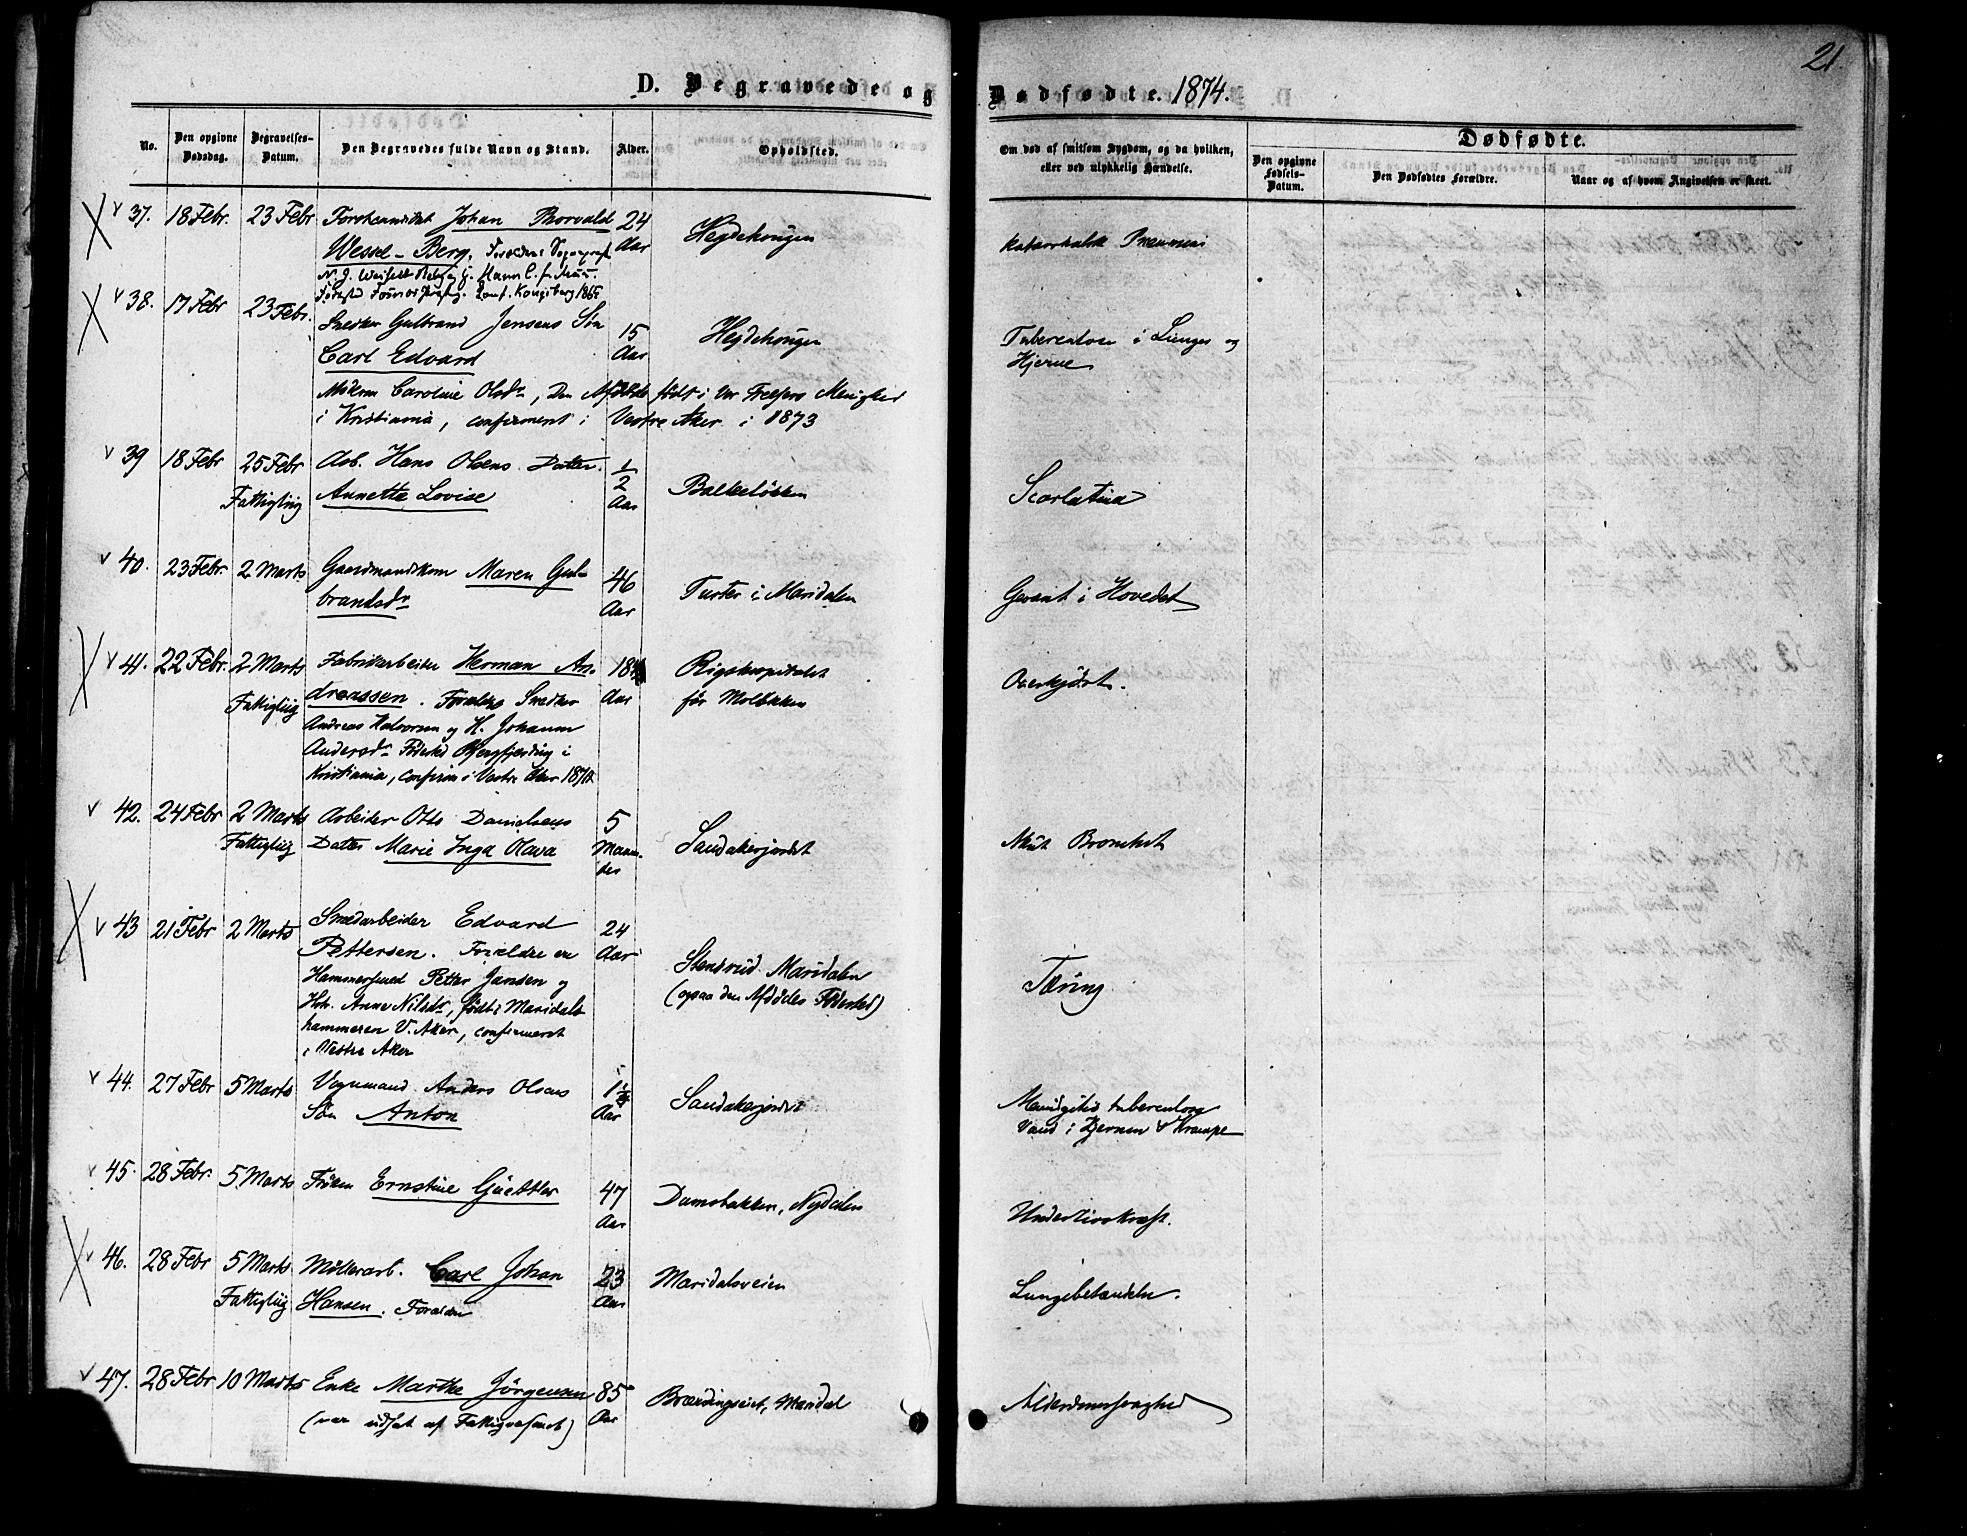 21.
D. Begravede og Dødfødte. 1874.
No.
Den opgivne Dødsdag.
Begravelses-Datum.
Den Begravedes fulde Navn og Stand.
Alder.
Opholdsted.
Om død af smitsom Sygdom, og da hvilken, eller ved ulykkelig Hændelse.
Dødfødte.
Den opgivne Fødsels-Datum.
Den Dødfødtes Forældre.
Naar og af hvem Angivelsen er skeet.
37. 18 Febr. 23 Febr Johan Thorvald 24 Aar Hegdehaugen
Wessel-Berg,
Kongsberg 1865
38. 17 Febr 23 Febr. Snedker Gulbrand Jensens Søn 15 Aar Hegdehaugen Tuberculose i Lunger og
Carl Edvard Hjerne
Caroline Olsdr, Den Afdøde født i Vor Frelsers Menighed
i Kristiania, confirmeret i Vestre Aker i 1873
39 18 Febr 25 Febr Arb. Hans Olsens Datter 1/2 Aar Balkeløkken Scarlatina
Fattiglig Annette Lovise
40. 23 Febr. 2 Marts Gaardmandskone Maren Gul- 46 Aar Turter i Maridalen Gevæxt i Hovedet
brandsdr
41. 22 Febr. 2 Marts Fabrikarbeider Herman An- 18 Aar Rigshospitalet Overkjørt.
Fattiglig dreassen. Forældre Snedker før Molbakken
Andreas Halvorsen og H. Johanne
Andersdr Fødested i
Kristiania, confirm i Vestre Aker 1870
42. 24 Febr 2 Marts Arbeider Otto Danielsens 5 Maane- der Sandakerjordet Akut Bronchit
Fattiglig Datter Marie Inga Olava
43 21 Febr 2 Marts Smedarbeider Edvard 24 Aar Stensrud Maridalen Tæring
Pettersen. Forældre ere (ogsaa den Afdødes Fødested)
Hammersmed Petter Jansen og
Hst. Anne Nilsdr, født i Maridals
hammeren V. Aker, confirmeret
i Vestre Aker
44. 27 Febr 5 Marts Vognmand Anders Olsens 1 Aar Sandakerjordet Meningitis tuberculosa
Søn Anton Vand i Hjernen & Krampe
45. 28 Febr. 5 Marts Frøken Ernstine 47 Aar Damsbakken, Nydalen Underlivskræft.
46. 28 Febr 5 Marts Møllerarb. Carl Johan 23 Aar Maridalsveien Lungebetændelse.
Fattiglig Hansen. Forældre
47. 28 Febr 10 Marts Enke Marthe Jörgensen 85 Aar Brændingseiet, Maridal Alderdomssvaghed
(var udsat af Fattigvæsenet)